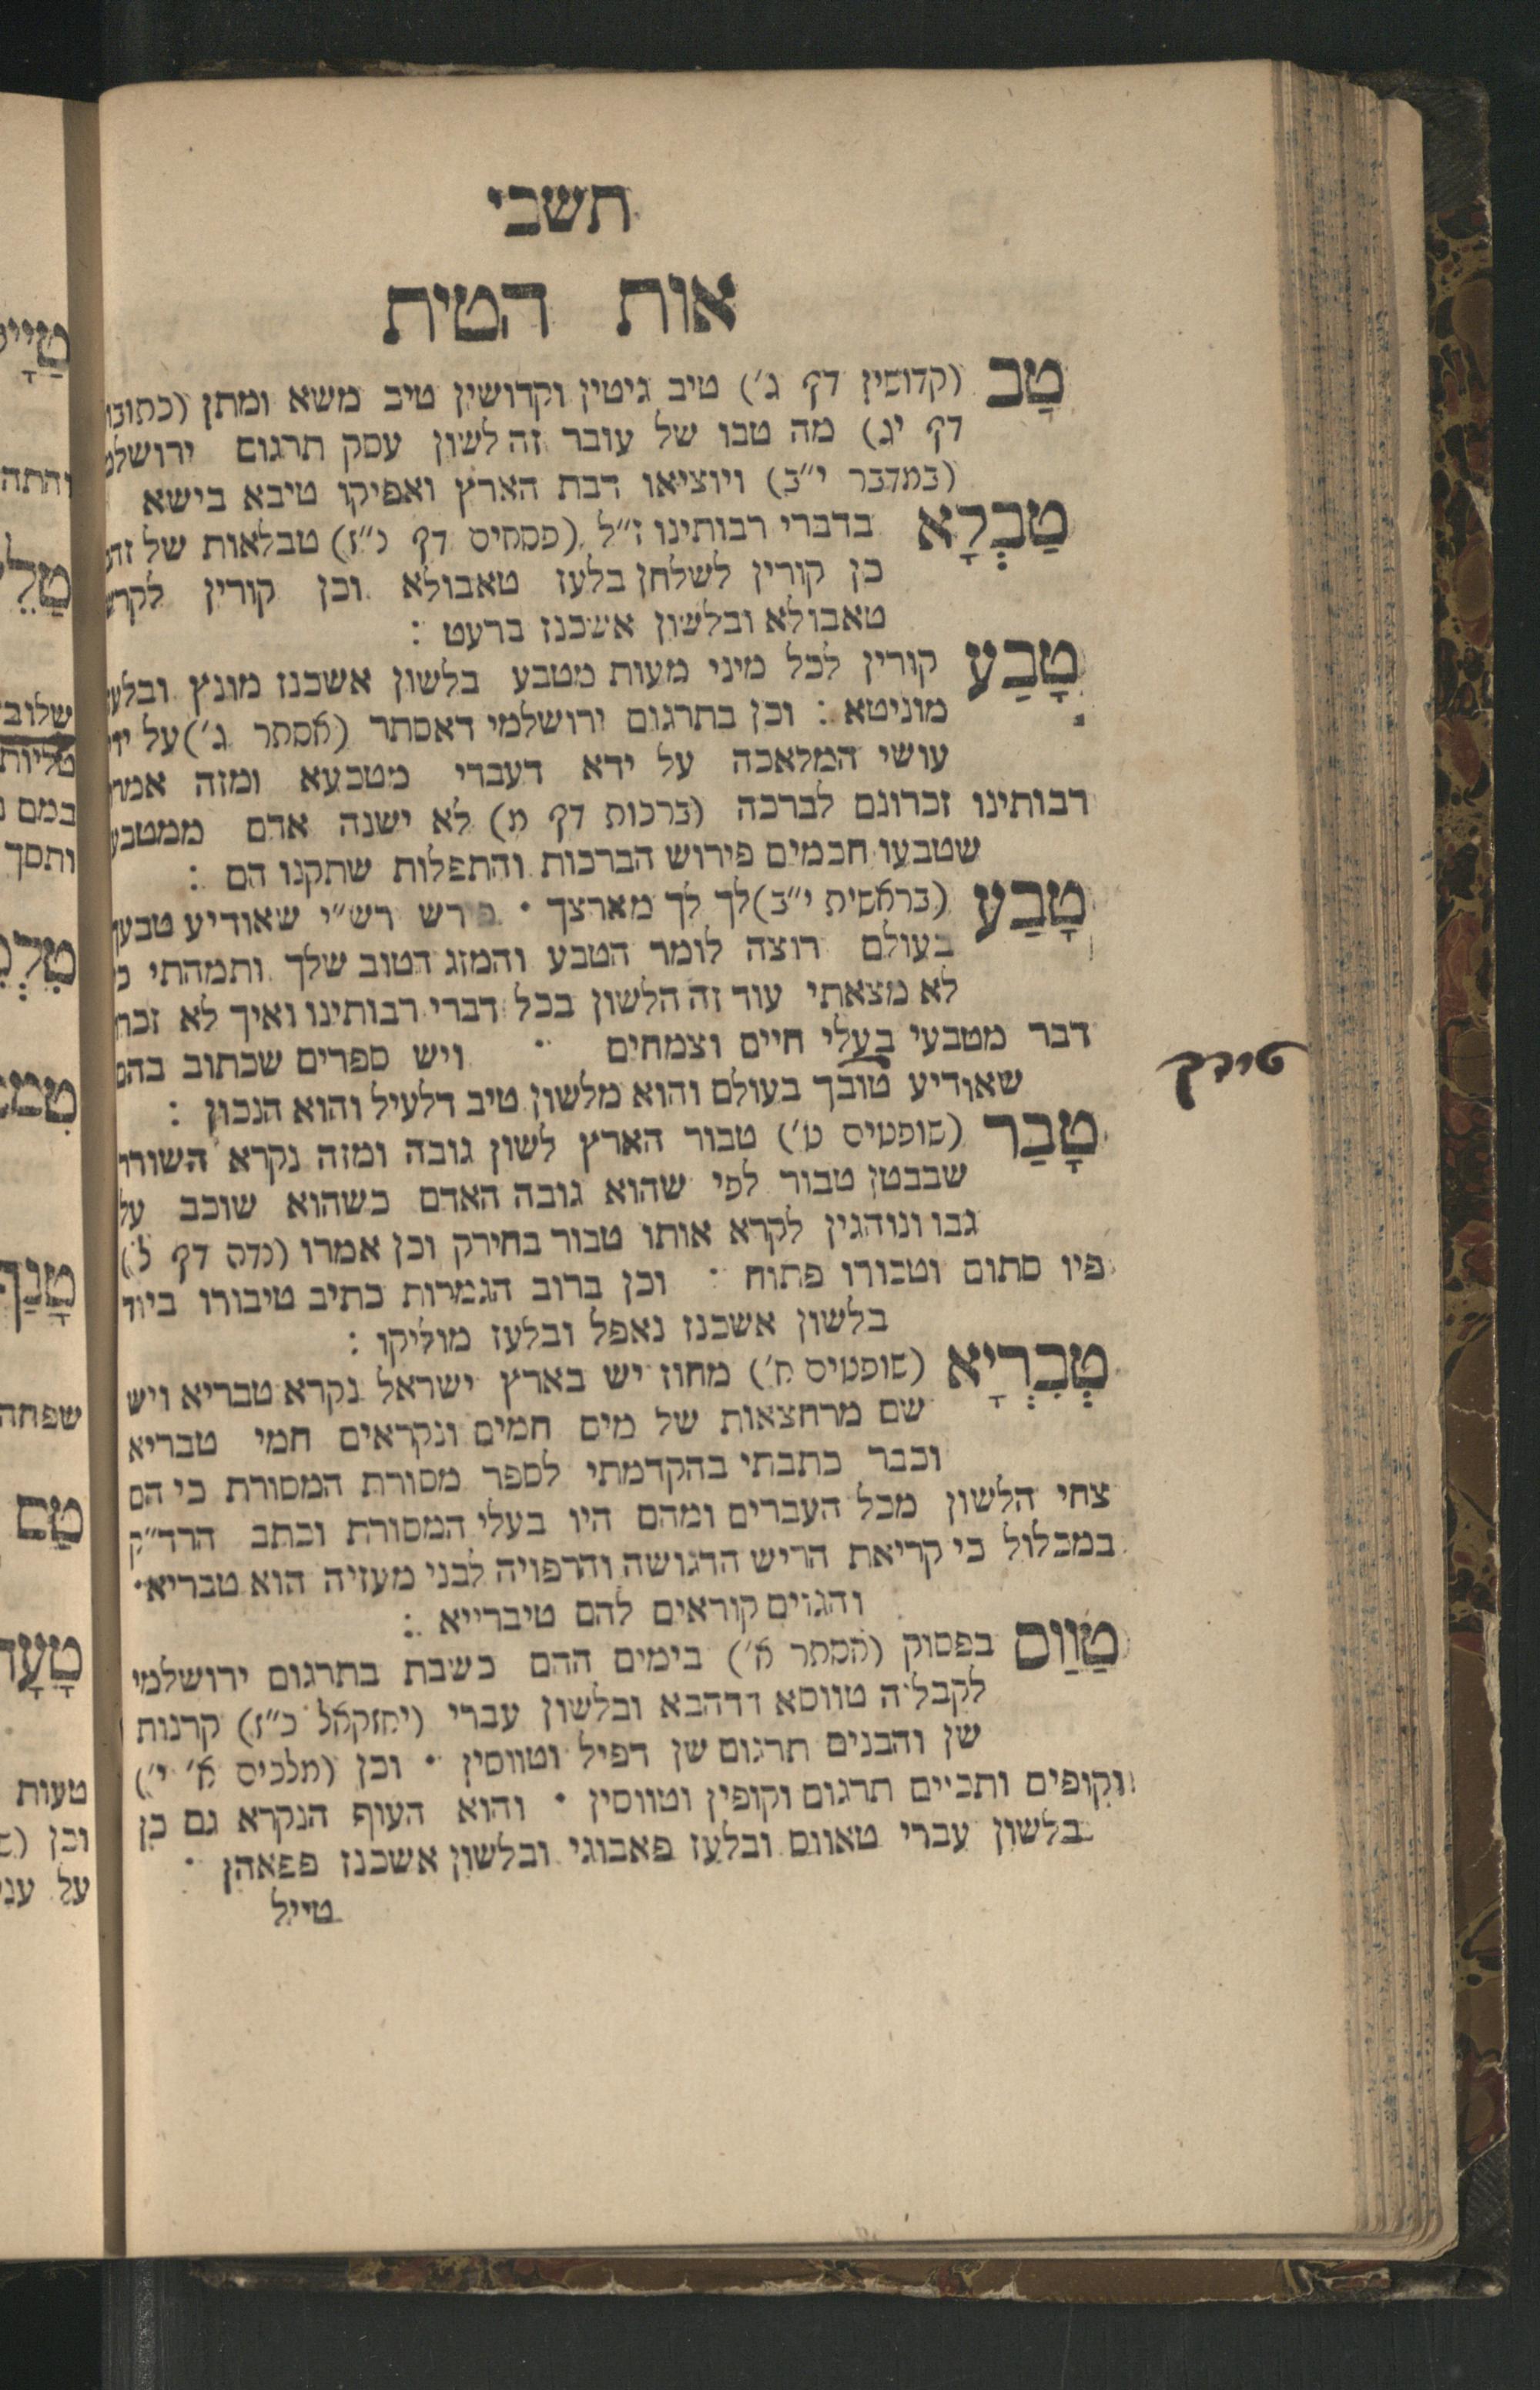 תשבי
אות הטית
טָב (קדושין דף ג') טיב גיטין וקדושין טיב משא ומתן
דף יג) מה טבו של עובר זה לשון עסק תרגום
(במדבר י"ב) ויוציאו דבת הארץ ואפיקו טיבא בישא
טַבְלָא בדברי רבותינו ז"ל (פסחים דף נ"ז) טבלאות של
כן קורין לשלחן בלעז טאבולא וכן קורין
טאבולא ובלשון אשכנז ברעט :
טָבַע קורין לכל מיני מעות מטבע בלשון אשכנז מונץ
מוניטא : וכן בתרגום ירושלמי דאסתר (אסתר ג') על
עושי המלאכה על ידא דעבדי מטבעא ומזה
רבותינו זכרונם לברכה (ברכות דף מ) לא ישנה אדם ממטבע
שטבעו חכמים פירוש הברכות והתפלות שתקנו הם :
טָבַע (בראשית י"ב) לך לך מארצך • פירש רש"י שאודיע טבעך
בעולם רוצה לומר הטבע והמזג הטוב שלך ותמהתי
לא מצאתי עוד זה הלשון בכל דברי רבותינו ואיך לא
דבר מטבעי בעלי חיים וצמחים • ויש ספרים שכתוב בהם
שאודיע טובך בעולם והוא מלשון טיב דלעיל והוא הנכון :
טיבך
טָבַר (שופטים ט') טבור הארץ לשון גובה ומזה נקרא השורר
שבבטן טבור לפי שהוא גובה האדם כשהוא שוכב על
גבו ונוהגין לקרא אותו טבור בחירק וכן אמרו (נדה דף ל')
פיו סתום וטבורו פתוח : וכן ברוב הגמרות כתיב טיבורו ביוד
בלשון אשכנז נאפל ובלעז מוליקו :
טְבִרְיָא (שופטים ח') מחוז יש בארץ ישראל נקרא טבריא ויש
שם מרחצאות של מים חמים ונקראים חמי טבריא
וכבר כתבתי בהקדמתי לספר מסורת המסורת כי הם
צחי הלשון מכל העברים ומהם היו בעלי המסורת וכתב הרד"ק
במכלול כי קריאת הריש הדגושה והרפויה לבני מעזיה הוא טבריא•
והגוים קוראים להם טיברייא :
טַוַוס בפסוק (אסתר א') בימים ההם כשבת בתרגום ירושלמי
לקבליה טווסא דדהבא ובלשון עברי (יחזקאל כ"ז) קרנות
שן והבנים תרגום שן דפיל וטווסין • וכן (מלכים א' י')
וקופים ותכיים תרגום וקופין וטווסין • והוא העוף הנקרא גם כן
בלשון עברי טאווס ובלעז פאבוגי ובלשון אשכנז פפאהן •
טייל